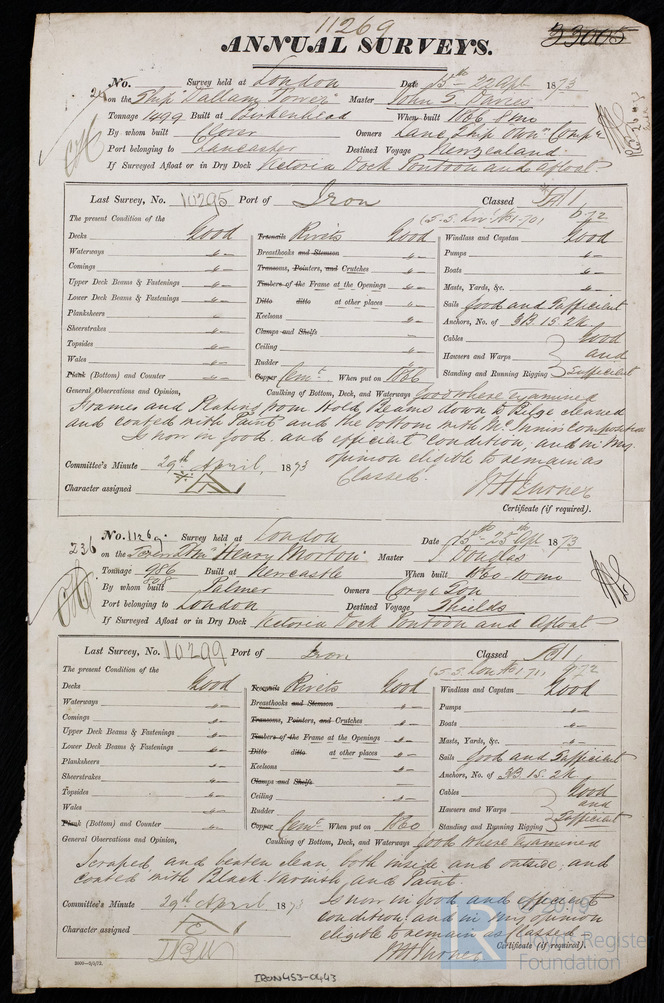 11269
33005
ANNUAL SURVEYS.
No. Survey held at London Date 15th 22 Apl 1873
24 on the Ship "Dallam Tower" Master John S. Davies
Tonnage 1499 Built at Birkenhead When built 1866 8mo
By whom built Clover Owners Lanc. Ship Own" Comp"
Port belonging to Lancaster Destined Voyage Newzealand
If Surveyed Afloat or in Dry Dock Victoria Dock Pontoon and Afloat.
Last Survey, No. 10295 Port of Iron Classed A1
(S.S. Liv. No 1-70) 6.72
The present Condition of the
Decks Good Treenails Rivets Good Windlass and Capstan Good
Waterways " Breasthooks and Stemson " Pumps "
Comings " Transoms, Pointers, and Crutches " Boats "
Upper Deck Beams & Fastenings " Timbers of the Frame at the Openings " Masts, Yards, &c. "
Lower Deck Beams & Fastenings " Ditto ditto at other places " Sails good and Sufficient
Planksheers " Keelsons " Anchors, No. of 3B. 1S. 2K.
Sheerstrakes " Clamps and Shelfs Cables Good
Topsides " Ceiling " Hawsers and Warps and
Wales " Rudder " Standing and Running Rigging Sufficient
Plank (Bottom) and Counter " Copper Cemt. When put on 1866
General Observations and Opinion, Caulking of Bottom, Deck, and Waterways Good where examined
Frames and Plating from Hold Beams down to Bilge cleaned
and coated with Paint and the bottom with McInnis composition
Is now in good and efficient condition, and in my
opinion eligible to remain as
Classed.
Committee's Minute 29th April, 1873
Character assigned A
Certificate (if required).
No. 11269. Survey held at London Date 15th - 25th Apl 1873
236 on the "Henry Morton" Master J Douglas
Tonnage 986 Built at Newcastle When built 1860-10mo
828
By whom built Palmer Owners Cory & Son
Port belonging to London Destined Voyage Shields
If Surveyed Afloat or in Dry Dock Victoria Dock Pontoon and Afloat
Last Survey, No. 10299 Port of Iron Classed A1
(S.S. Lon No 1-71) 9.72
The present Condition of the
Decks Good Treenails Rivets Good Windlass and Capstan Good
Waterways " Breasthooks and Stemson " Pumps "
Comings " Transoms, Pointers, and Crutches " Boats "
Upper Deck Beams & Fastenings " Timbers of the Frame at the Openings " Masts, Yards, &c. "
Lower Deck Beams & Fastenings " Ditto ditto at other places " Sails good and Sufficient
Planksheers " Keelsons " Anchors, No. of 3B. 1S. 2K.
Sheerstrakes " Clamps and Shelfs Cables Good
Topsides " Ceiling " Hawsers and Warps and
Wales " Rudder " Standing and Running Rigging Sufficient
Plank (Bottom) and Counter " Copper Cemt. When put on 1860
General Observations and Opinion, Caulking of Bottom, Deck, and Waterways Good where examined
Scraped and beaten clean both inside and outside, and
coated with Black Varnish and Paint.
Committee's Minute 29th April 1873 Is now in good and efficient
condition and in my opinion
Character assigned A eligible to remain as Classed
Certificate (if required).
IRON453-0443
Register
Foundation